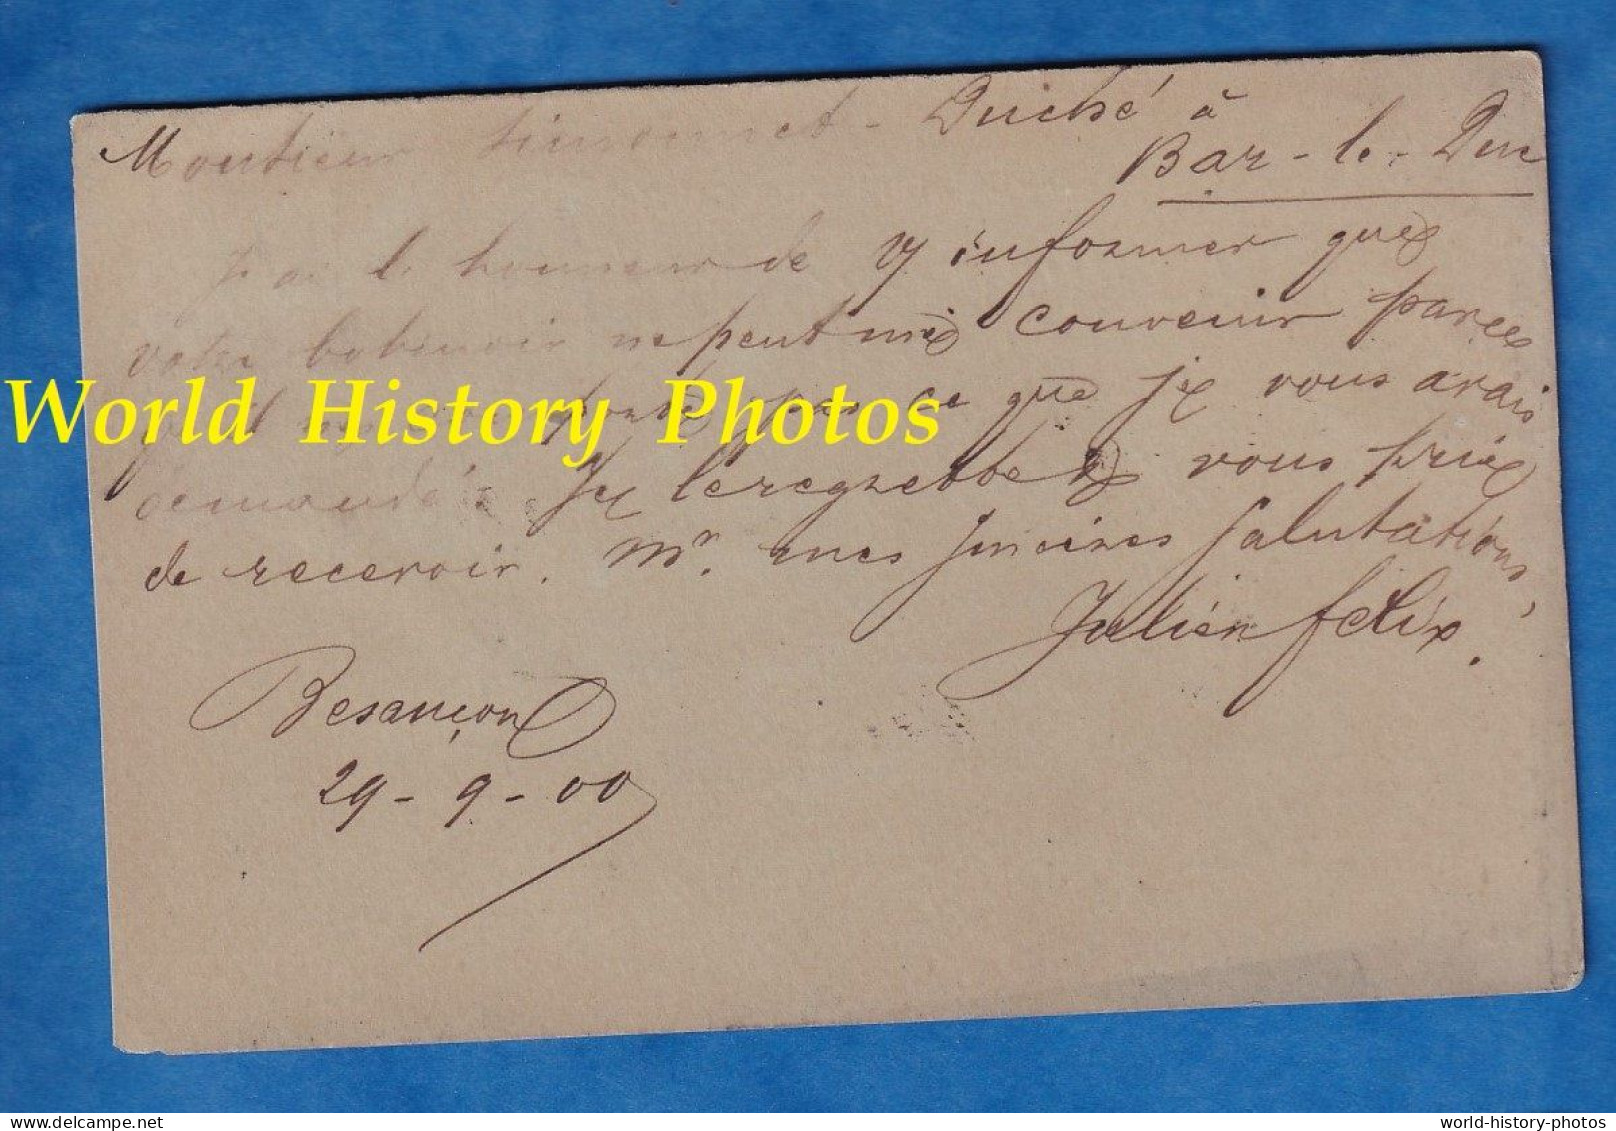 Monsieur Simonnet - Duché à
Bar-le-Duc
J'ai l'honneur de v/ informer que
votre bobinoir ne peut me convenir parce
World History Photos
pas ce que je vous avais
demandé. Je le regrette & vous prie
de recevoir, Mr. mes sincères salutations,
Julien Félix.
Besançon
29-9-00
world-history-photos
world-history-photos